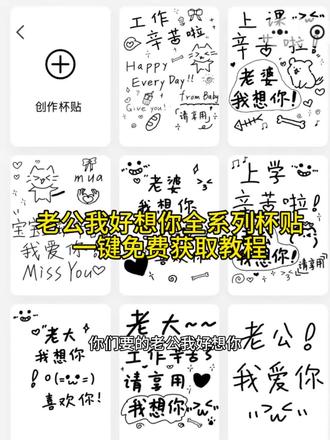 创作杯贴
工作
辛苦啦
Happy
Every Day!!
from Baby
Give you!
请享用
上课
辛苦啦!
老婆
我想你!
mua
宝宝
我爱你
Miss You
老婆
我想你
上学
辛苦啦!
我想你!
请享用
老公我好想你全系列杯贴
一键免费获取教程
老大
我想你
喜欢你!
老大~~
你们要的老公我好想你
工作辛苦
请享用
我想你
老公!
我爱你